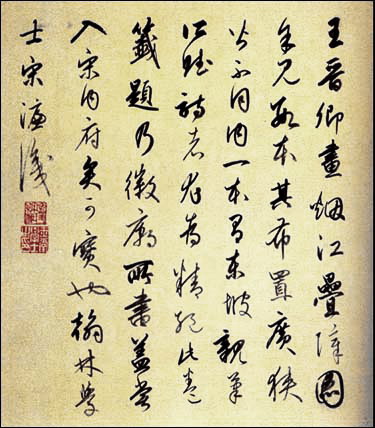 王晉卿畫烟江疊嶂圖
余見數本其布置廣狹
皆不同内一本有東坡親筆
賦詩者尤為精絕此卷
籤題乃徽廟所書蓋嘗
入宋内府矣可寶也翰林學
士宋濂識